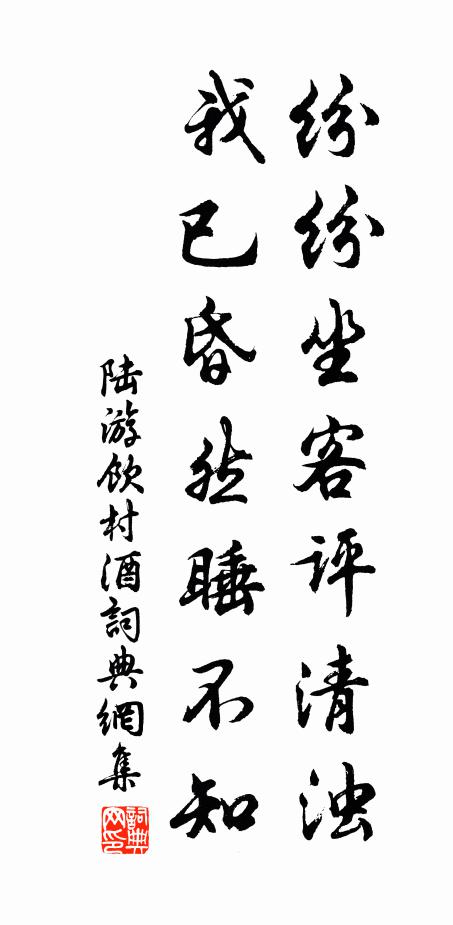 纷纷坐客评清浊
我已昏然睡不知
陆游饮村酒詞典網集
詞典
网印